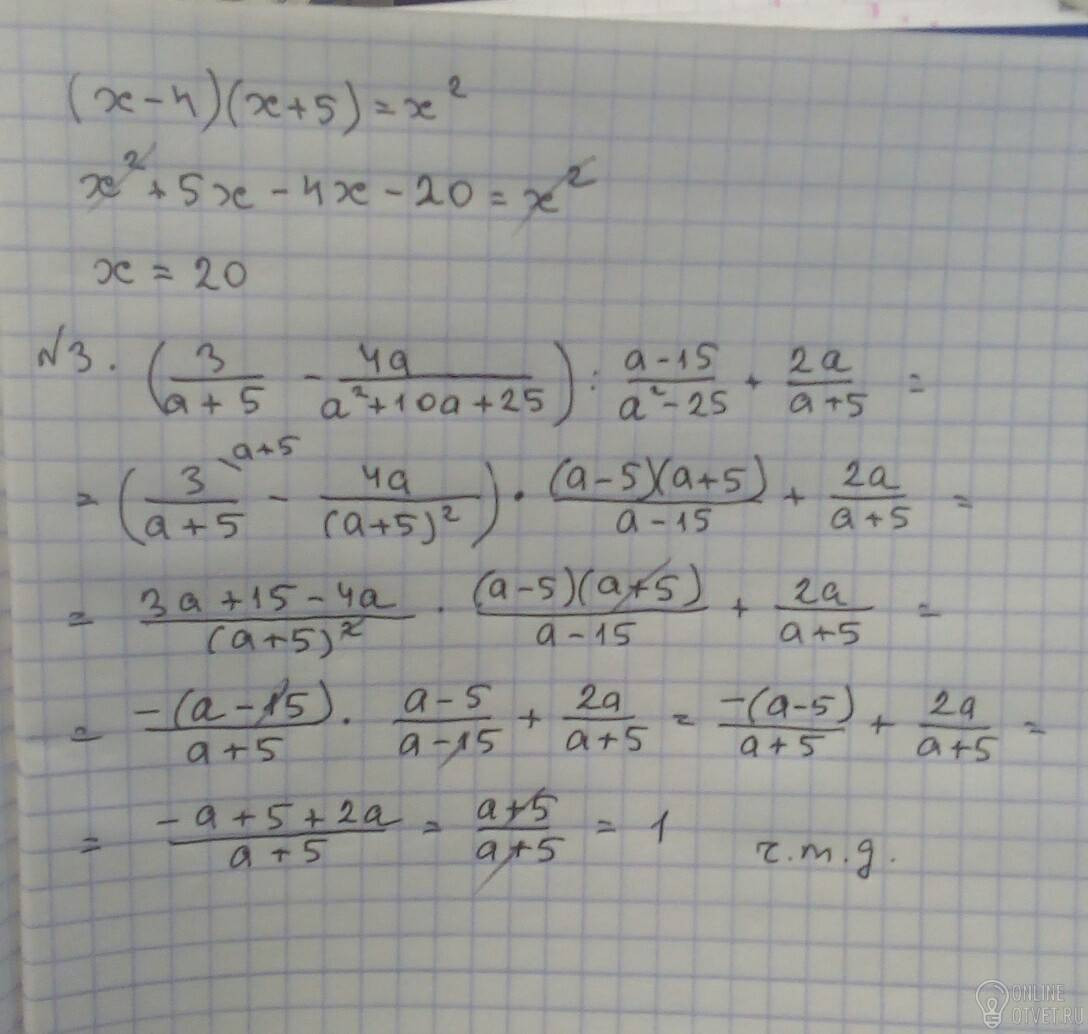 (x-4)(x+5)=x²
x²+5x-4x-20=x²
x=20
N3. (3/(a+5) - 4a/(a²+10a+25)) : (a-15)/(a²-25) + 2a/(a+5) =
= (3\a+5/(a+5) - 4a/(a+5)²) · (a-5)(a+5)/(a-15) + 2a/(a+5) =
= (3a+15-4a)/(a+5)² · (a-5)(a+5)/(a-15) + 2a/(a+5) =
= -(a-15)/(a+5) · (a-5)/(a-15) + 2a/(a+5) = -(a-5)/(a+5) + 2a/(a+5) =
= (-a+5+2a)/(a+5) = (a+5)/(a+5) = 1 ч.т.д.
ONLINE
OTVET.RU